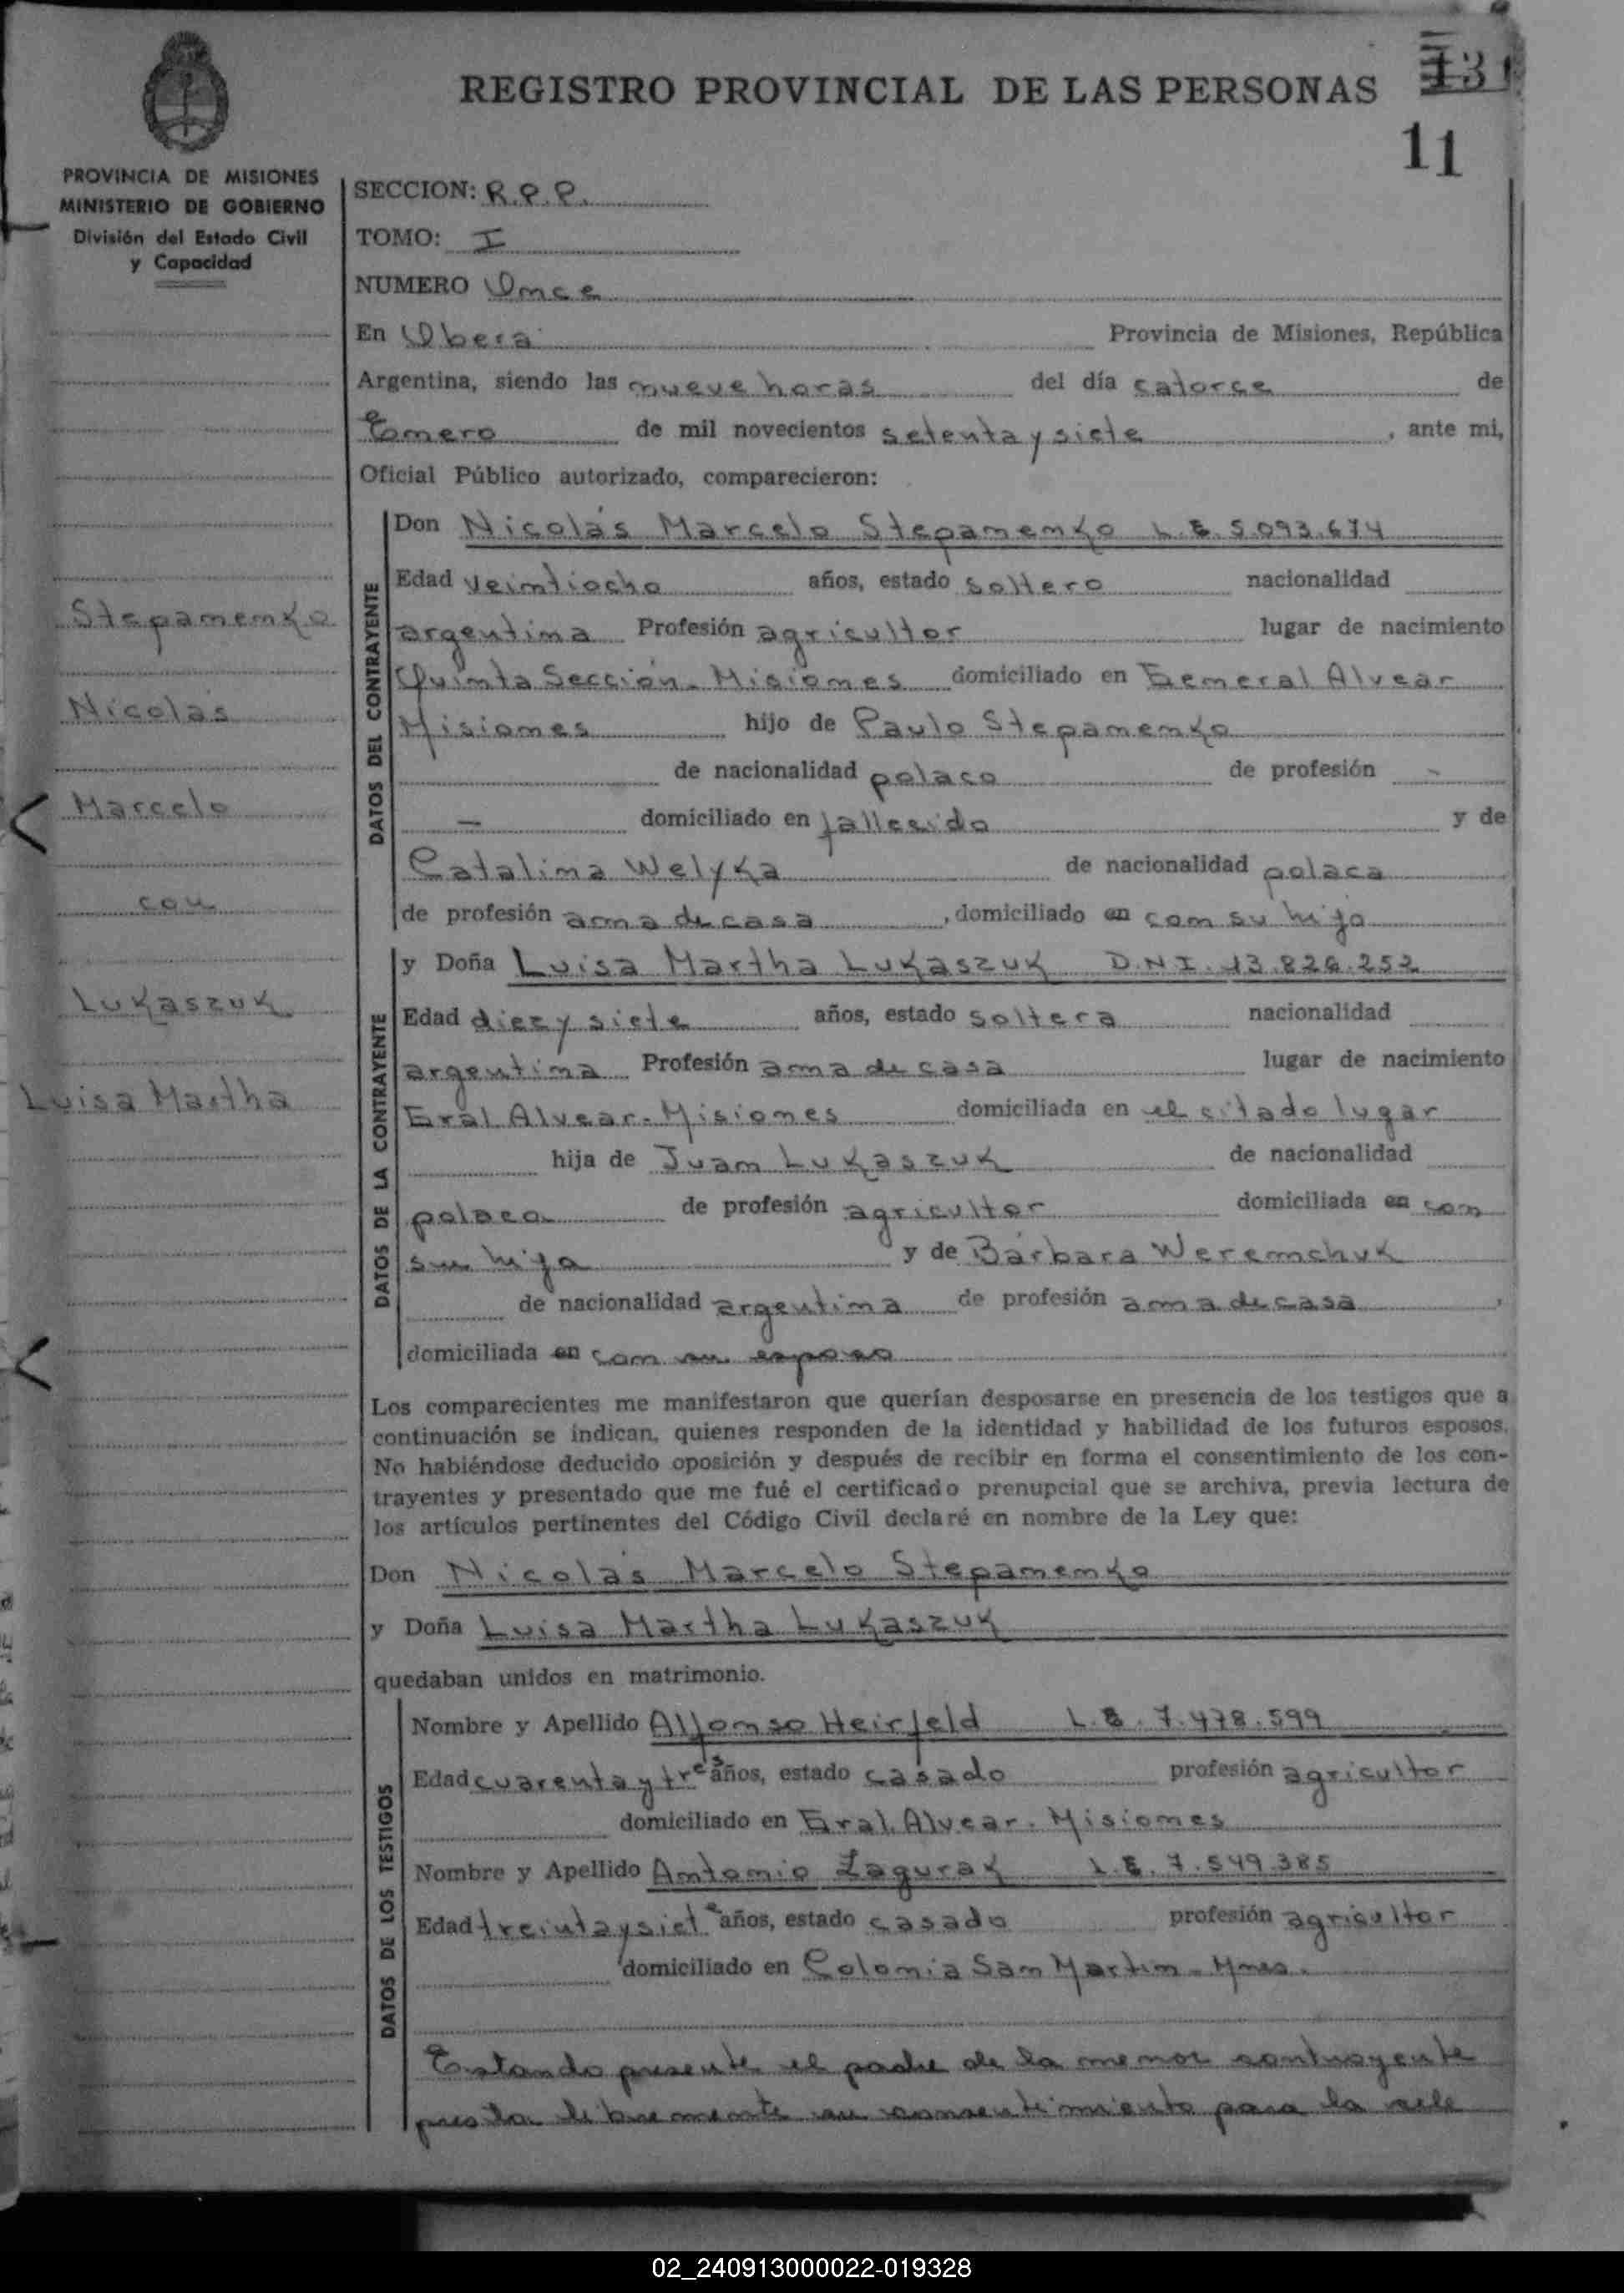 REGISTRO PROVINCIAL DE LAS PERSONAS
11
PROVINCIA DE MISIONES
MINISTERIO DE GOBIERNO
División del Estado Civil
y Capacidad
SECCION: R.P.P.
TOMO: I
NUMERO Once
En Oberá Provincia de Misiones, República
Argentina, siendo las nueve horas del día catorce de
Enero de mil novecientos setenta y siete, ante mi,
Oficial Público autorizado, comparecieron:
Stepanenko
Nicolás
Marcelo
con
Lukaszuk
Luisa Martha
DATOS DEL CONTRAYENTE
Don Nicolás Marcelo Stepanenko L.E. 5.093.674
Edad veintiocho años, estado soltero nacionalidad
argentina Profesión agricultor lugar de nacimiento
Quinta Sección - Misiones domiciliado en General Alvear
Misiones hijo de Paulo Stepanenko
de nacionalidad polaco de profesión -
- domiciliado en fallecido y de
Catalina Welyka de nacionalidad polaca
de profesión ama de casa, domiciliado en con su hijo
DATOS DE LA CONTRAYENTE
y Doña Luisa Martha Lukaszuk D.N.I. 13.826.252
Edad diez y siete años, estado soltera nacionalidad
argentina Profesión ama de casa lugar de nacimiento
Gral. Alvear - Misiones domiciliada en el citado lugar
hija de Juan Lukaszuk de nacionalidad
polaca de profesión agricultor domiciliada en con
su hija y de Bárbara Weremchuk
de nacionalidad argentina de profesión ama de casa,
domiciliada en con su esposo
Los comparecientes me manifestaron que querían desposarse en presencia de los testigos que a
continuación se indican, quienes responden de la identidad y habilidad de los futuros esposos.
No habiéndose deducido oposición y después de recibir en forma el consentimiento de los con-
trayentes y presentado que me fué el certificado prenupcial que se archiva, previa lectura de
los artículos pertinentes del Código Civil declaré en nombre de la Ley que:
Don Nicolás Marcelo Stepanenko
y Doña Luisa Martha Lukaszuk
quedaban unidos en matrimonio.
DATOS DE LOS TESTIGOS
Nombre y Apellido Alfonso Heirfeld L.E. 7.478.599
Edad cuarenta y tres años, estado casado profesión agricultor
domiciliado en Gral. Alvear - Misiones
Nombre y Apellido Antonio Zagurak L.E. 7.549.385
Edad treinta y siete años, estado casado profesión agricultor
domiciliado en Colonia San Martin - Mnes.
Estando presente el padre de la menor contrayente
presta libremente su consentimiento para la cele
02_240913000022-019328